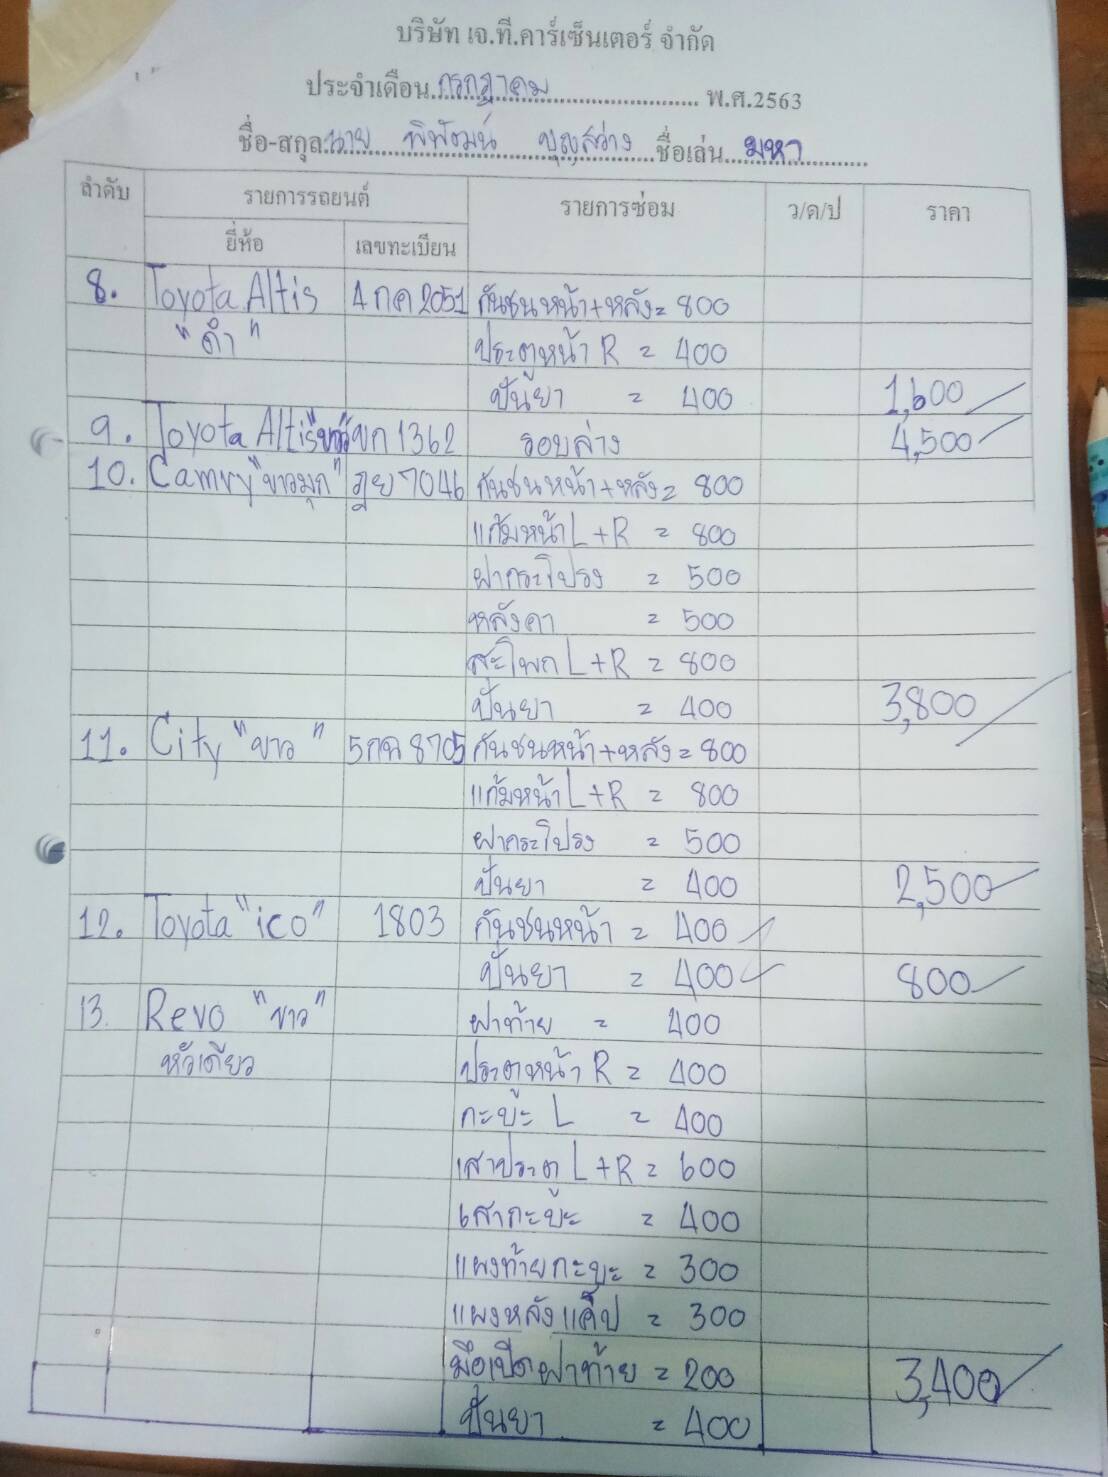 บริษัท เจ.ที.คาร์เซ็นเตอร์ จำกัด
ประจำเดือน กรกฎาคม พ.ศ.2563
ชื่อ-สกุล นาย พิพัฒน์ บุญสว่าง ชื่อเล่น มหา
ลำดับ รายการรถยนต์ รายการซ่อม ว/ด/ป ราคา
ยี่ห้อ เลขทะเบียน
8. Toyota Altis 4 กค 2051 กันชนหน้า+หลัง = 800
"ดำ" ประตูหน้า R = 400
ปั้นยา = 400 1,600
9. Toyota Altis "ขาว" ขก 1362 รอบล่าง 4,500
10. Camry "ขาวมุก" ฎย 7046 กันชนหน้า+หลัง = 800
แก้มหน้า L+R = 800
ฝากระโปรง = 500
หลังคา = 500
สะโพก L+R = 800
ปั้นยา = 400 3,800
11. City "ขาว" 5กฉ 8705 กันชนหน้า+หลัง = 800
แก้มหน้า L+R = 800
ฝากระโปรง = 500
ปั้นยา = 400 2,500
12. Toyota "ico" 1803 กันชนหน้า = 400
ปั้นยา = 400 800
13. Revo "ขาว" ฝาท้าย = 400
หัวเดียว ประตูหน้า R = 400
กะบะ L = 400
เสาประตู L+R = 600
เสากะบะ = 400
แผงท้ายกะบะ = 300
แผงหลังแค็ป = 300
มือเปิดฝาท้าย = 200 3,400
ปั้นยา = 400